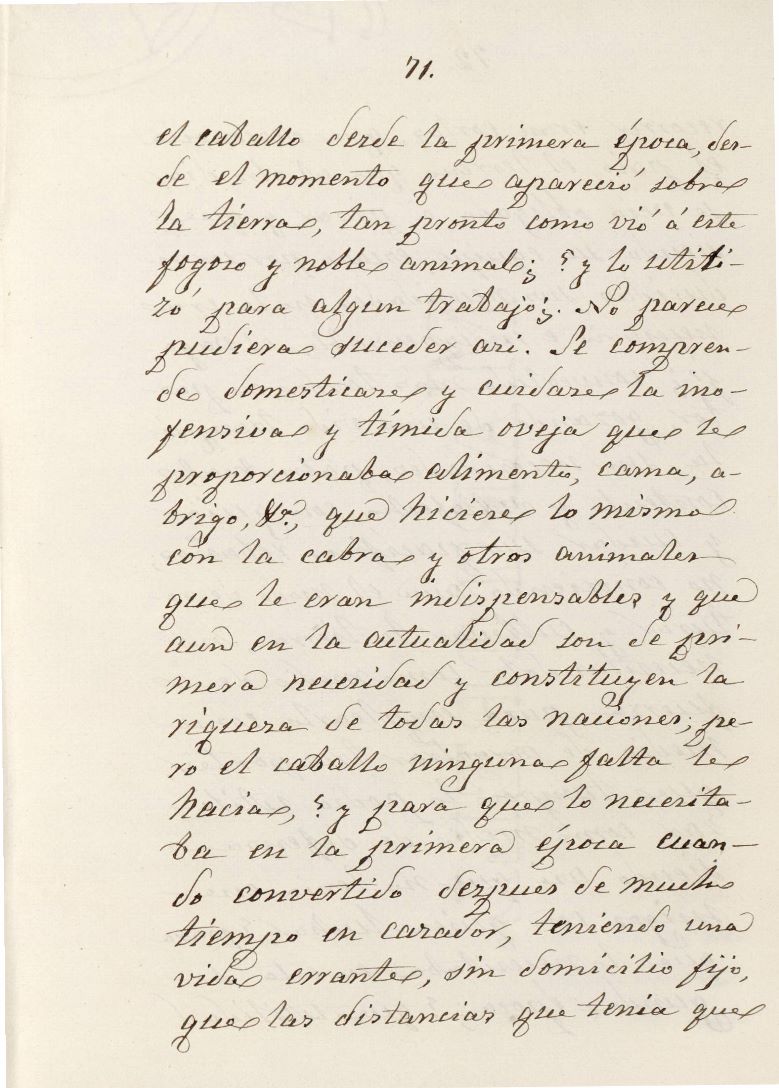 71.
el caballo desde la primera época, des-
de el momento que apareció sobre
la tierra, tan pronto como vió á este
fogoso y noble animal; ? y lo utili-
zó para algun trabajo?. No parece
pudiera suceder asi. Se compren-
de domesticase y cuidase la ino-
fensiva y tímida oveja que le
proporcionaba alimento, cama, a-
brigo, &a., que hiciese lo mismo
con la cabra y otros animales
que le eran indispensables y que
aun en la actualidad son de pri-
mera necesidad y constituyen la
riqueza de todas las naciones; pe-
ro el caballo ninguna falta le
hacia, ? y para que lo necesita-
ba en la primera época cuan-
do convertido despues de mucho
tiempo en cazador, teniendo una
vida errante, sin domicilio fijo,
que las distancias que tenia que